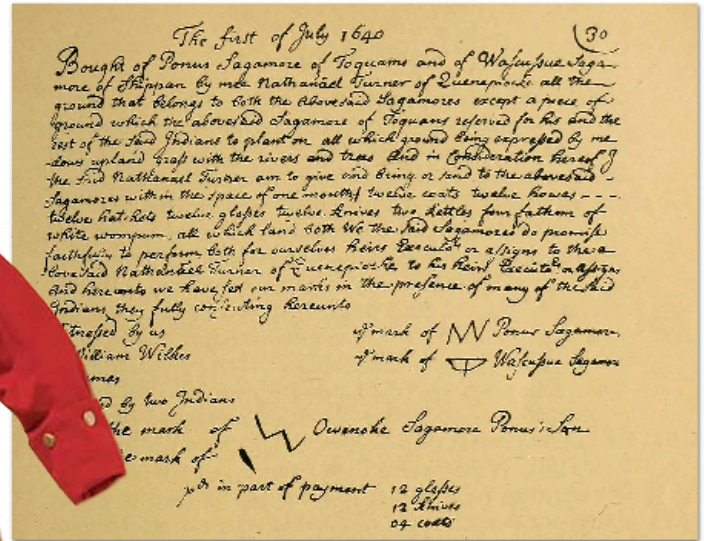 The first of July 1640
30
Bought of Ponus Sagamore of Toquams and of Wascussue Saga-
more of Shippan by mee Nathanael Turner of Quenepiocke all the
ground that belongs to both the abovesaid Sagamores except a piece of
ground which the abovesaid Sagamore of Toquans reserved for his and the
rest of the said Indians to plant on all which ground being expressed by me
dows upland grass with the rivers and trees And in Consideration hereof I
the said Nathanael Turner am to give and bring or send to the abovesaid
Sagamores within the space of one month twelve coats twelve howes - - -
twelve hatchets twelve glasses twelve knives two kettles four fathom of
white wompum. all which land both We the said Sagamores do promise
faithfully to perform both for ourselves heirs Executors or assigns to the a
bovesaid Nathanael Turner of Quenepiocke to his heirs Executors or assigns
And hereunto we have set our marks in the presence of many of the said
Indians they fully consenting hereunto
tnessed by us
illiam Wilkes
mes
ed by two Indians
ye mark of Ponus Sagamore.
ye mark of Wascussue Sagamore
the mark of Owenoke Sagamore Ponus's Son
e mark of
pd in part of payment 12 glasses
12 knives
04 coats